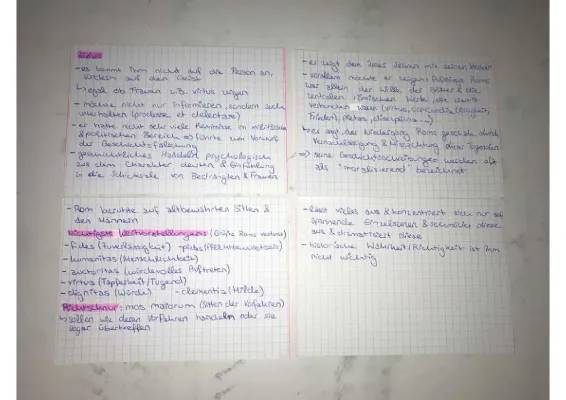 Livius
- es kommt ihm nicht auf die Person an,
sondern auf den Geist
↳ egal ob Frauen z.B. virtus zeigen
- möchte nicht nur informieren, sondern auch
unterhalten (prodesse et delectare)
- er hatte nicht sehr viele Kenntnisse im militärischen
& politischen Bereich ⇒ führte zum Vorwurf
der Geschichtsfälschung
- geschichtliches Handeln psychologisch
aus dem Charakter deuten & Einfühlung
in die Schicksale von Bedrängten & Frauen
- er zeigt dem Leser
- vorallem möchte er zeigen: Aufstieg Roms
war allein der Wille der Götter & die
zentralen römischen Werte, die damit
verbunden waren (virtus, concordia (Einigkeit,
Frieden), pietas, disciplina ...)
↳ er sagt der Niedergang Roms geschah durch
Vernachlässigung & Missachtung dieser Tugenden
⇒ seine Geschichtsschreibungen werden oft
als "moralisierend" bezeichnet
- Rom beruhte auf altbewährten Sitten &
den Männern
Wichtigste Wertvorstellungen: (Größe Roms
- fides (Zuverlässigkeit) - pietas (Pflichtbewusstsein)
- humanitas (Menschlichkeit)
- auctoritas (würdevolles Auftreten)
- virtus (Tapferkeit/Tugend)
- dignitas (Würde) - clementia (Milde)
Richtschnur: mos maiorum (Sitten der Vorfahren)
↳ sollen wie deren Vorfahren handeln oder sie
sogar übertreffen
- lässt vieles aus & konzentriert sich nur auf
spannende Einzelszenen & schmückt diese
aus & dramatisiert diese
- historische Wahrheit/Richtigkeit ist ihm
nicht wichtig